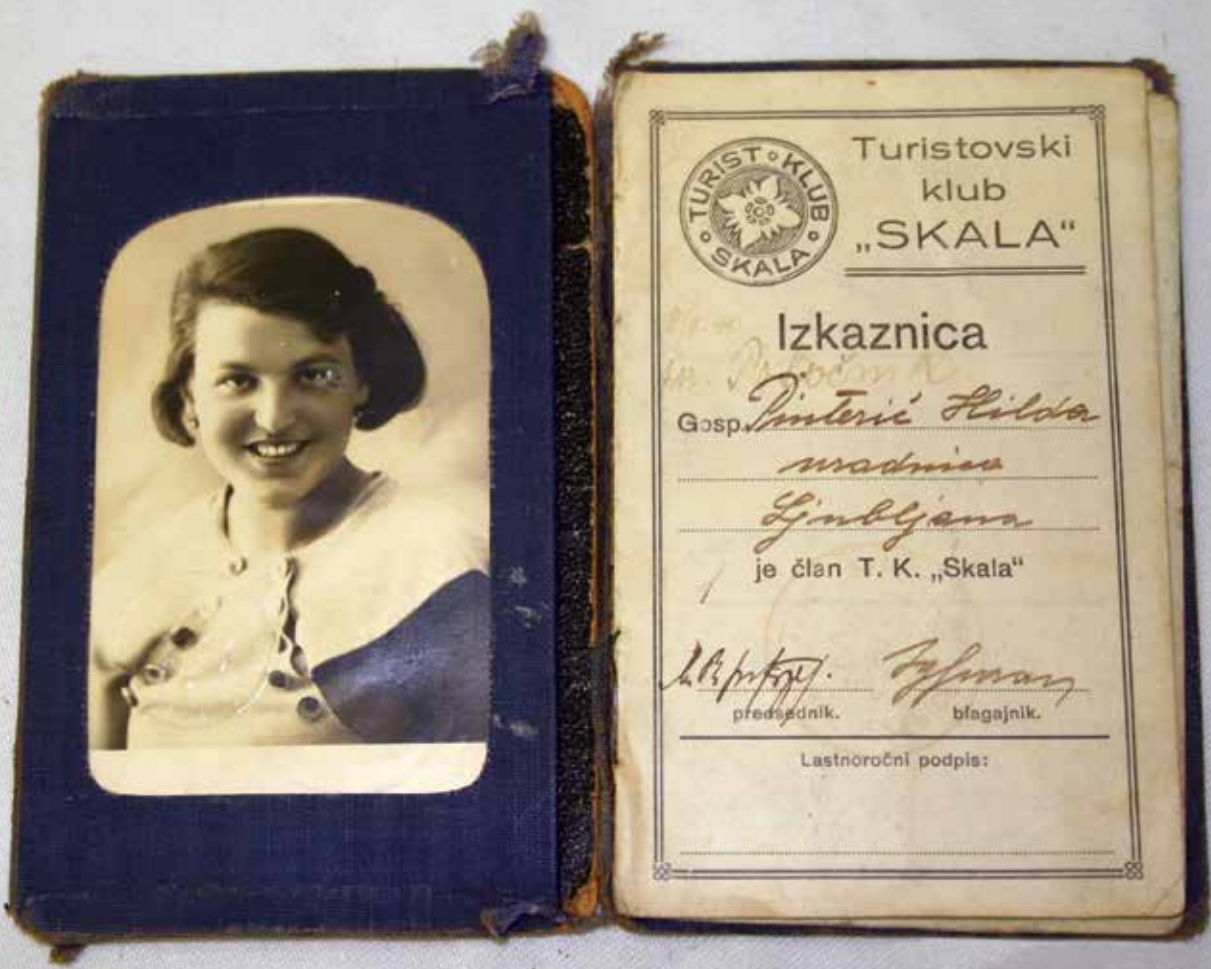 TURIST KLUB SKALA
Turistovski
klub
„SKALA“
Izkaznica
Gosp. Pinterič Hilda
uradnica
Ljubljana
je član T. K. „Skala“
predsednik.
blagajnik.
Lastnoročni podpis: